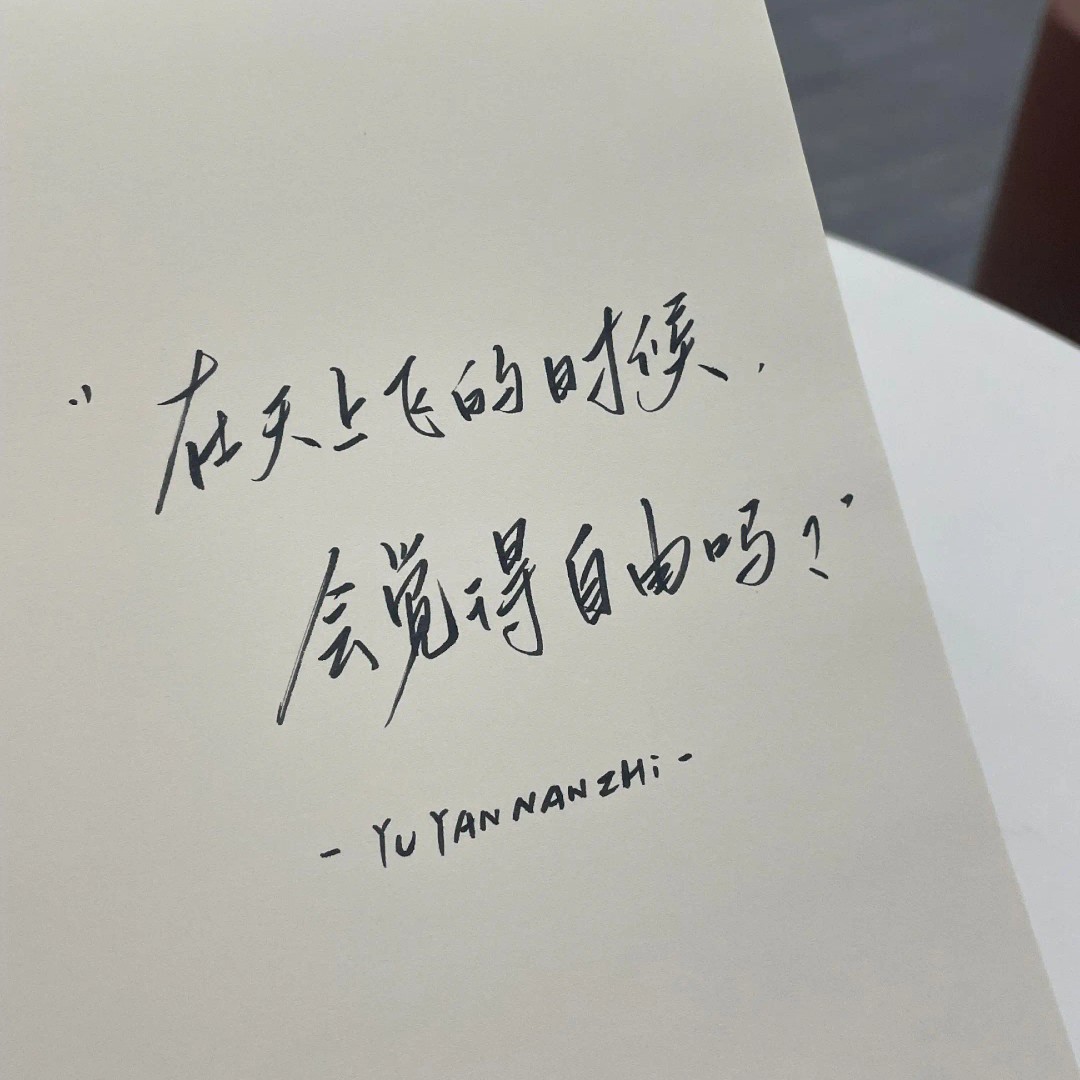 “在天上飞的时候，
会觉得自由吗？”
- YU YAN NAN ZHi -